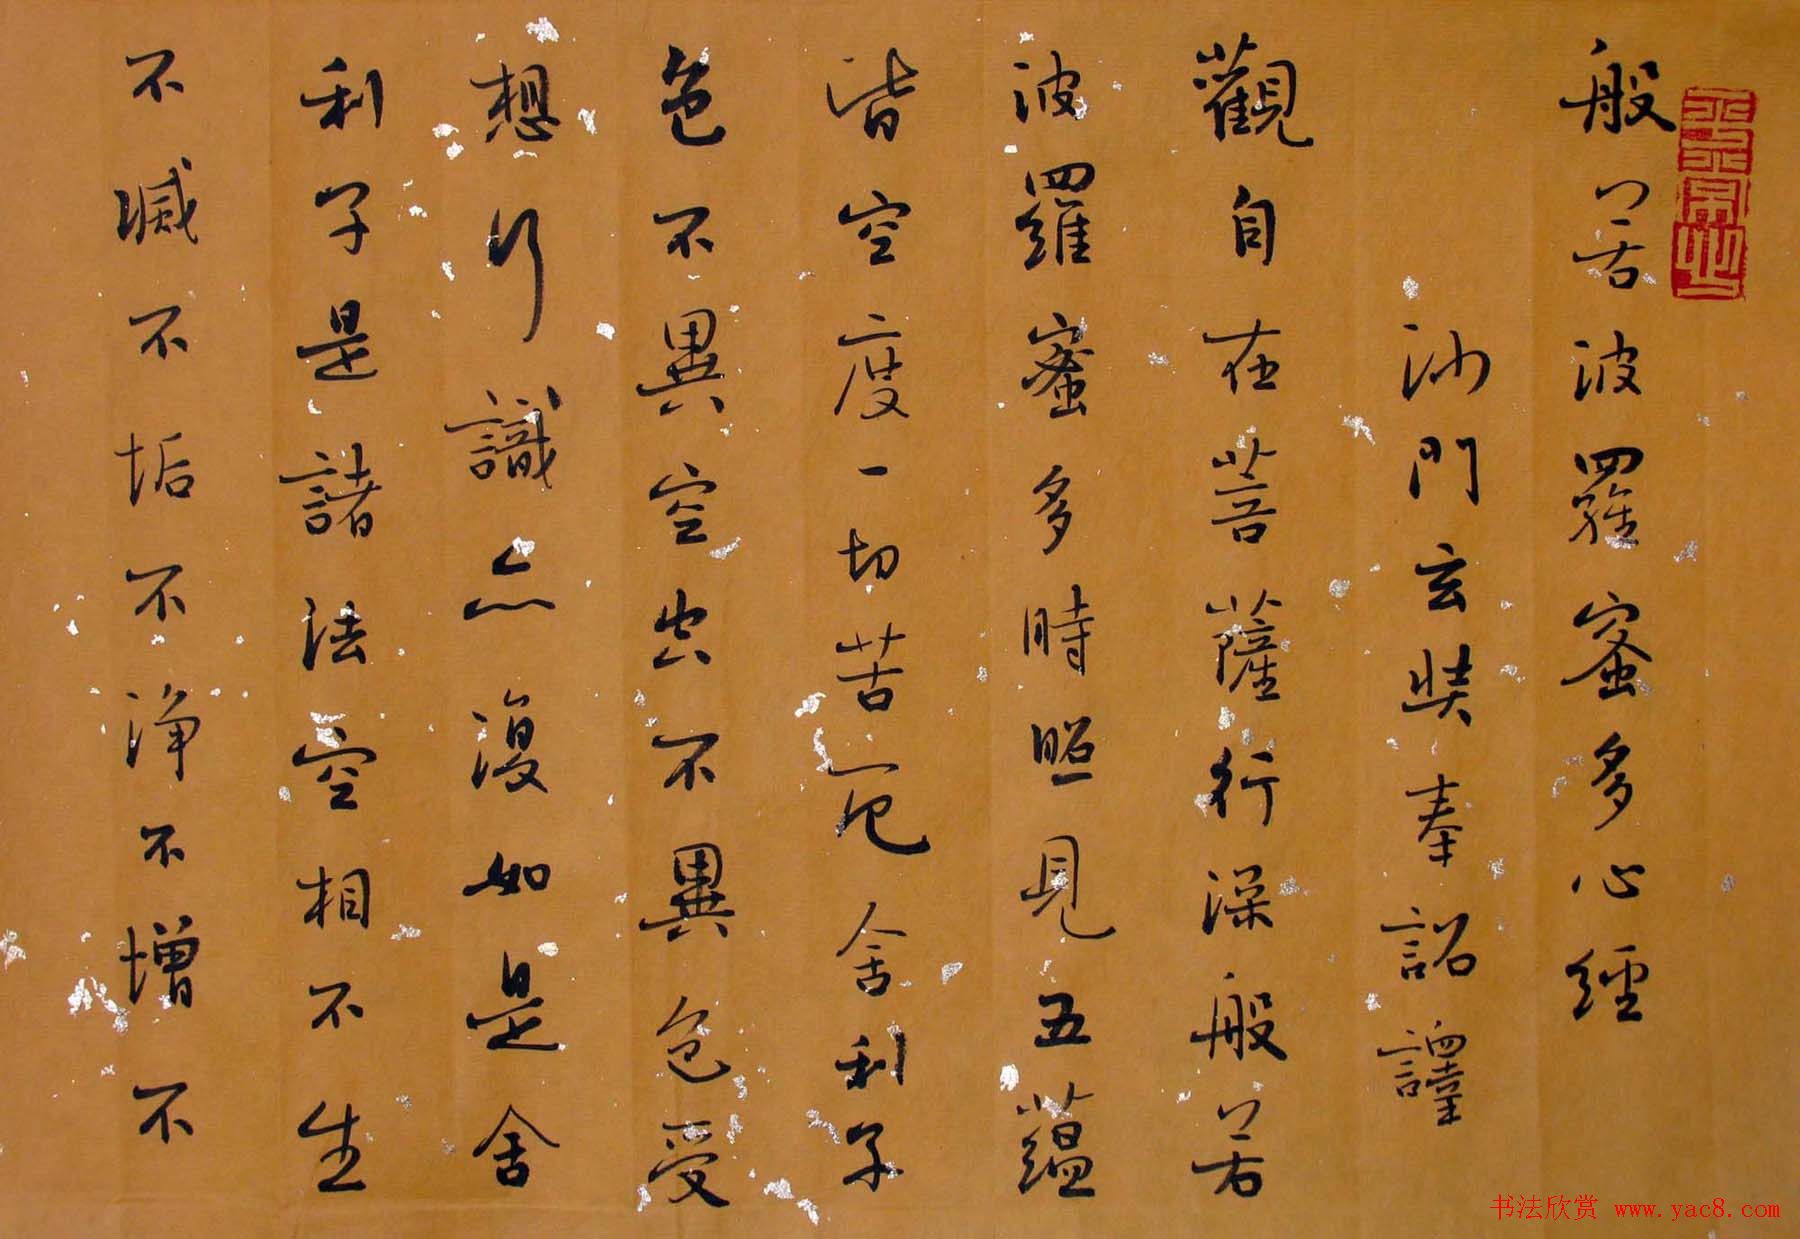 般若波羅蜜多心經
沙門玄奘奉詔譯
觀自在菩薩行深般若
波羅蜜多時照見五蘊
皆空度一切苦厄舍利子
色不異空空不異色受
想行識亦復如是舍
利子是諸法空相不生
不滅不垢不淨不增不
书法欣赏 www.yac8.com